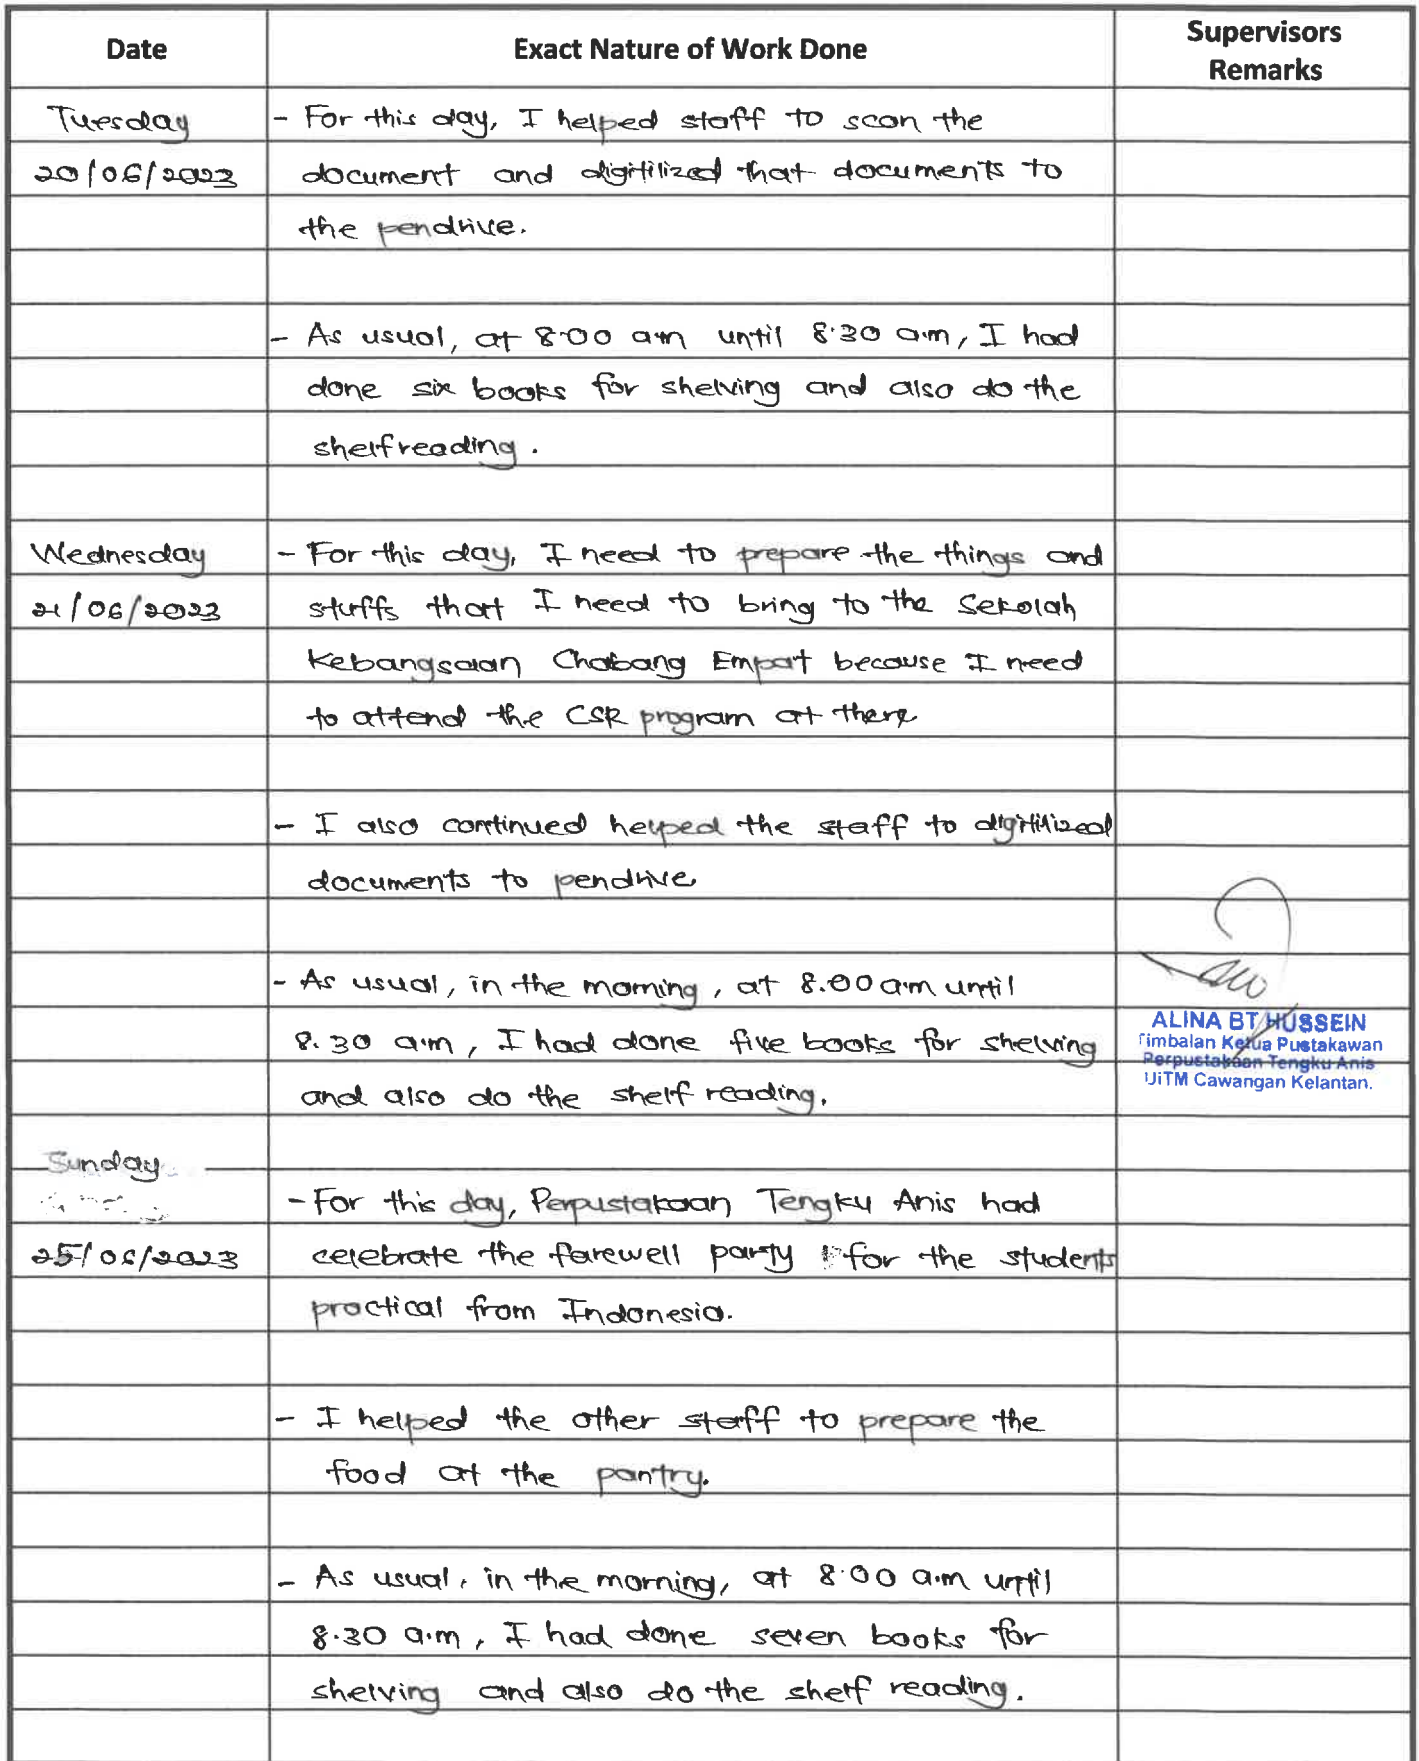 Date Exact Nature of Work Done Supervisors Remarks
Tuesday - For this day, I helped staff to scan the
20/06/2023 document and digitilized that documents to
the pendrive.
- As usual, at 8.00 am until 8.30 a.m, I had
done six books for shelving and also do the
shelfreading.
Wednesday - For this day, I need to prepare the things and
21/06/2023 stuffs that I need to bring to the Sekolah
Kebangsaan Chabang Empat because I need
to attend the CSR program at there
- I also continued helped the staff to digitilized
documents to pendrive
- As usual, in the morning, at 8.00 a.m until
8.30 a.m, I had done five books for shelving
and also do the shelf reading.
ALINA BT HUSSEIN
Timbalan Ketua Pustakawan
Perpustakaan Tengku Anis
UiTM Cawangan Kelantan.
Sunday
- For this day, Perpustakaan Tengku Anis had
25/06/2023 celebrate the farewell party for the students
practical from Indonesia.
- I helped the other staff to prepare the
food at the pantry.
- As usual, in the morning, at 8.00 a.m until
8.30 a.m, I had done seven books for
shelving and also do the shelf reading.